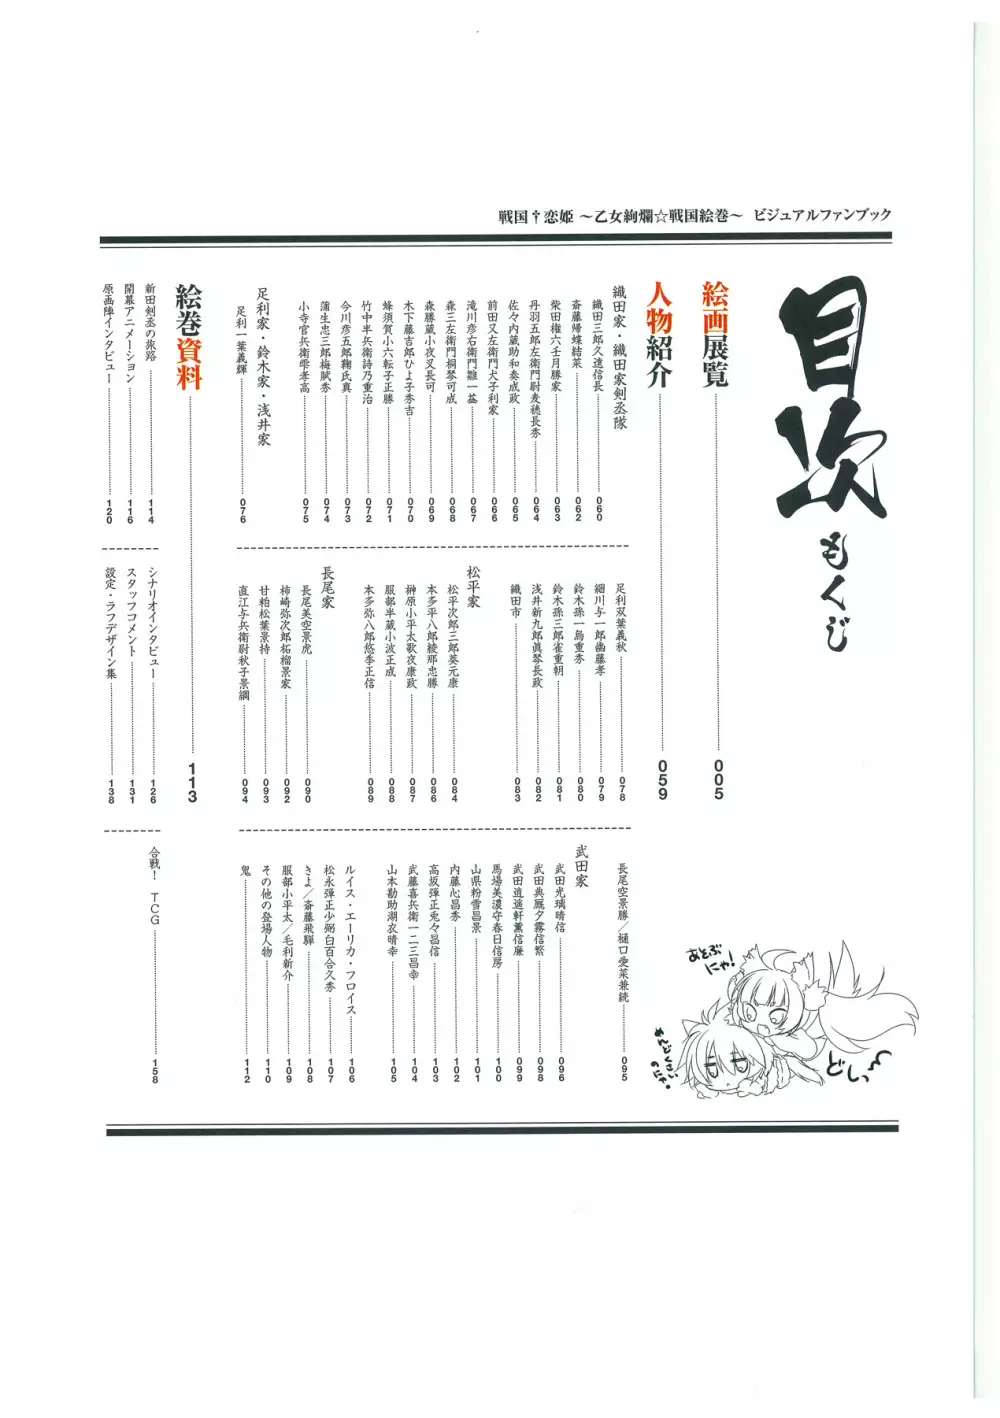 戦国†恋姫 ～乙女絢爛☆戦国絵巻～ ビジュアルファンブック
目次
もくじ
絵画展覧 005
人物紹介 059
織田家・織田家剣丞隊
織田三郎久遠信長 060
斎藤帰蝶結菜 062
柴田権六壬月勝家 063
丹羽五郎左衛門尉麦穂長秀 064
佐々内蔵助和奏成政 065
前田又左衛門犬子利家 066
滝川彦右衛門雛一益 067
森三左衛門桐琴可成 068
森勝蔵小夜叉長可 069
木下藤吉郎ひよ子秀吉 070
蜂須賀小六転子正勝 071
竹中半兵衛詩乃重治 072
今川彦五郎鞠氏真 073
蒲生忠三郎梅賦秀 074
小寺官兵衛雫孝高 075
足利家・鈴木家・浅井家
足利一葉義輝 076
足利双葉義秋 078
細川与一郎幽藤孝 079
鈴木孫一烏重秀 080
鈴木孫三郎雀重朝 081
浅井新九郎眞琴長政 082
織田市 083
松平家
松平次郎三郎葵元康 084
本多平八郎綾那忠勝 086
榊原小平太歌夜康政 087
服部半蔵小波正成 088
本多弥八郎悠季正信 089
長尾家
長尾美空景虎 090
柿崎弥次郎柘榴景家 092
甘粕松葉景持 093
直江与兵衛尉秋子景綱 094
長尾空景勝／樋口愛菜兼続 095
武田家
武田光璃晴信 096
武田典厩夕霧信繁 098
武田逍遥軒薫信廉 099
馬場美濃守春日信房 100
山県粉雪昌景 101
内藤心昌秀 102
高坂弾正兎々昌信 103
武藤喜兵衛一二三昌幸 104
山本勘助湖衣晴幸 105
ルイス・エーリカ・フロイス 106
松永弾正少弼白百合久秀 107
きよ／斎藤飛騨 108
服部小平太／毛利新介 109
その他の登場人物 110
鬼 112
絵巻資料 113
新田剣丞の旅路 114
開幕アニメーション 116
原画陣インタビュー 120
シナリオインタビュー 126
スタッフコメント 131
設定・ラフデザイン集 138
合戦！ TCG 158
あそぶにゃ！
めんどくさいのにゃ。
どしっ～